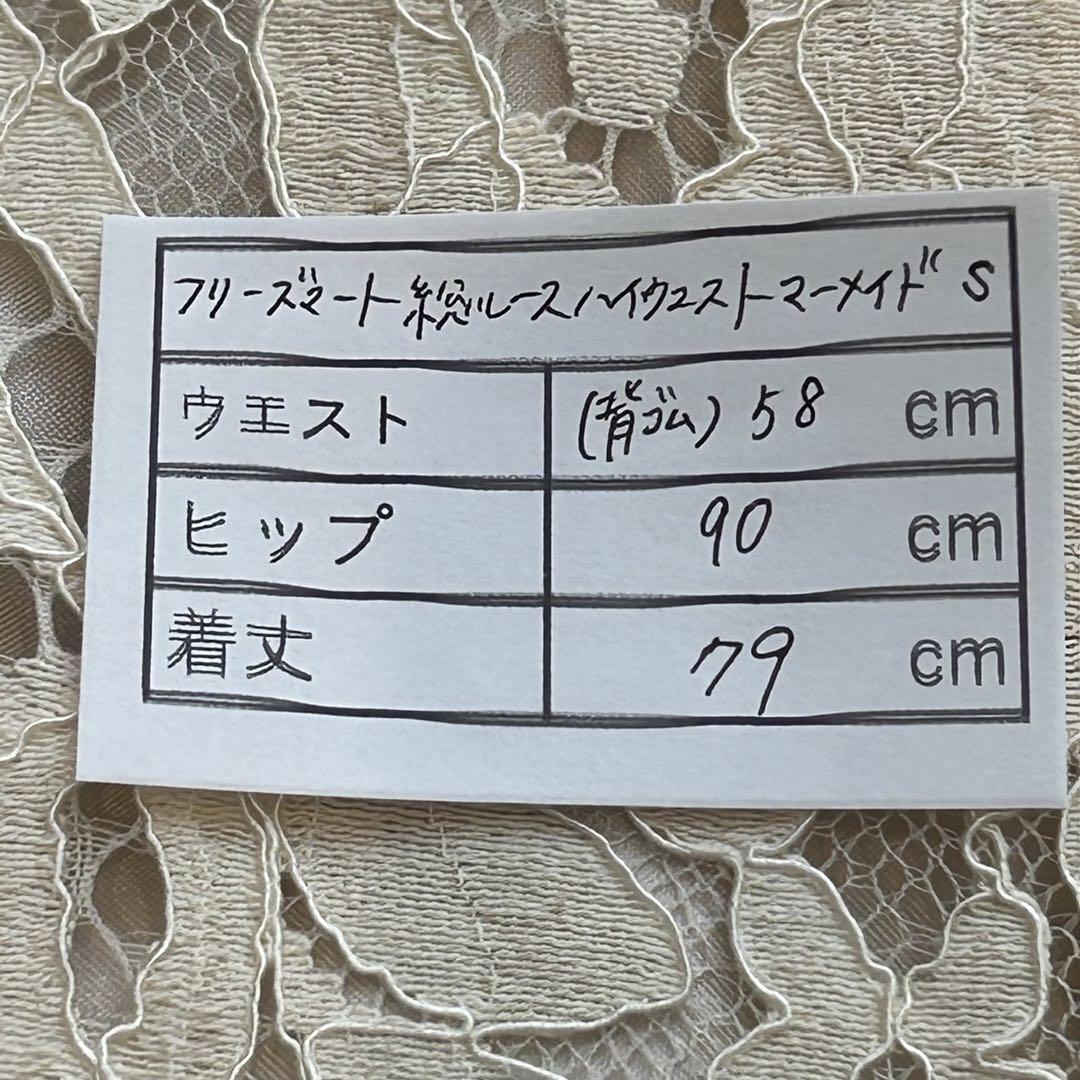 フリーズマート総レースハイウエストマーメイド S
ウエスト (背ゴム) 58 cm
ヒップ 90 cm
着丈 79 cm